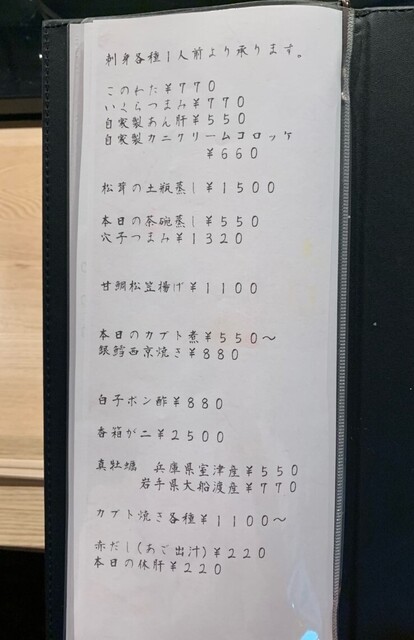 刺身各種1人前より承ります。
このわた¥770
いくらつまみ¥770
自家製あん肝¥550
自家製カニクリームコロッケ
¥660
松茸の土瓶蒸し¥1500
本日の茶碗蒸し¥550
穴子つまみ¥1320
甘鯛松笠揚げ¥1100
本日のカブト煮¥550～
銀鱈西京焼き¥880
白子ポン酢¥880
香箱がニ¥2500
真牡蠣 兵庫県室津産¥550
岩手県大船渡産¥770
カブト焼き各種¥1100～
赤だし(あご出汁)¥220
本日の休肝¥220